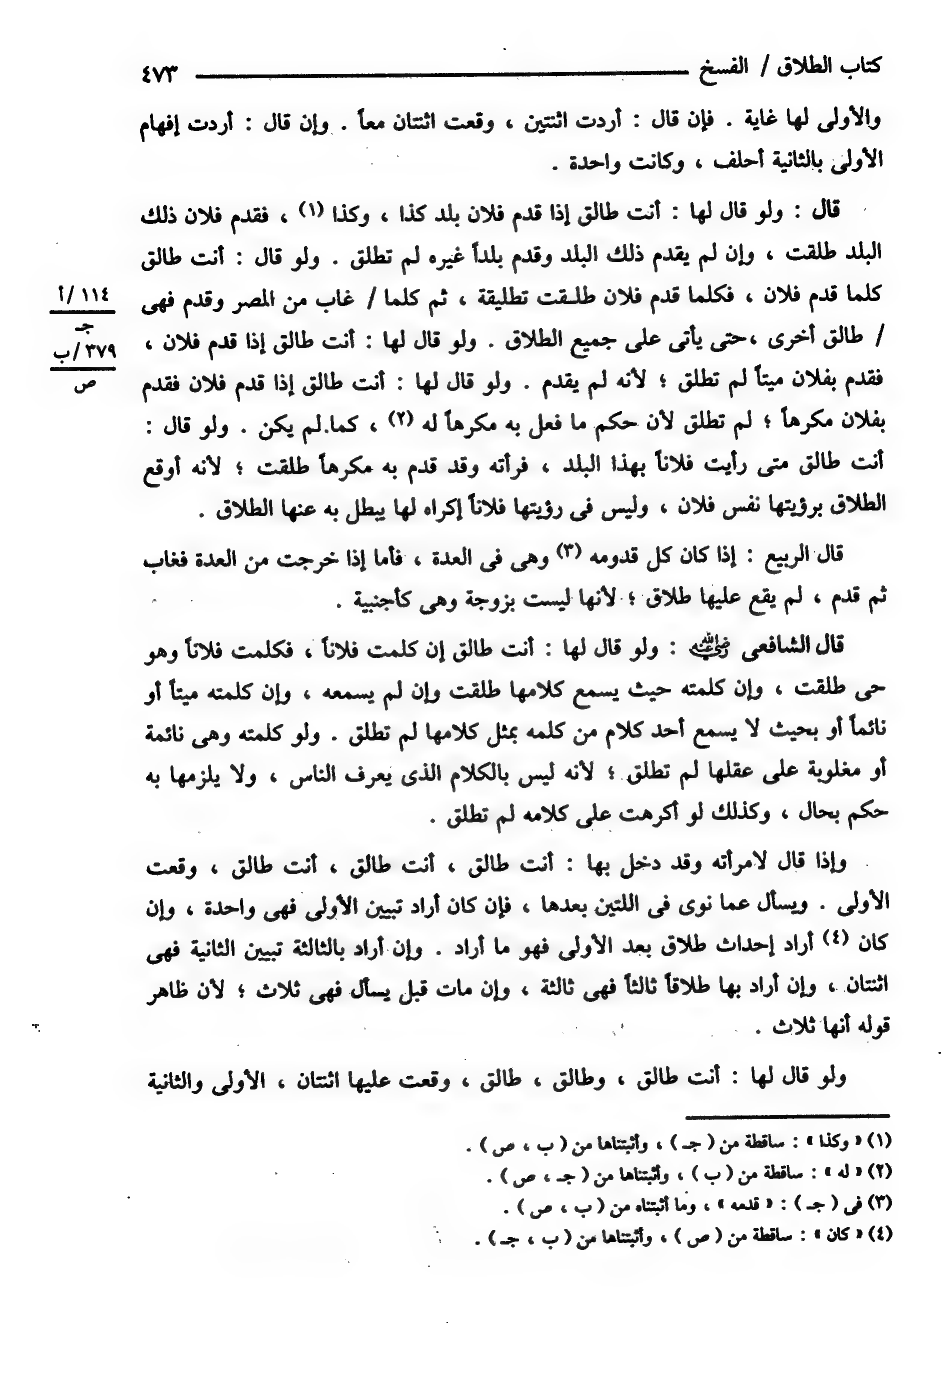 كتاب الطلاق / الفسخ ٤٧٣
والأولى لها غاية . فإن قال : أردت اثنتين ، وقعت اثنتان معاً . وإن قال : أردت إفهام
الأولى بالثانية أحلف ، وكانت واحدة .
قال : ولو قال لها : أنت طالق إذا قدم فلان بلد كذا ، وكذا (١) ، فقدم فلان ذلك
البلد طلقت ، وإن لم يقدم ذلك البلد وقدم بلداً غيره لم تطلق . ولو قال : أنت طالق
كلما قدم فلان ، فكلما قدم فلان طلـقت تطليقة ، ثم كلما / غاب من المصر وقدم فهى
/ طالق أخرى ،حتى يأتى على جميع الطلاق . ولو قال لها : أنت طالق إذا قدم فلان ،
فقدم بفلان ميتاً لم تطلق ؛ لأنه لم يقدم . ولو قال لها : أنت طالق إذا قدم فلان فقدم
بفلان مكرهاً ؛ لم تطلق لأن حكم ما فعل به مكرهاً له (٢) ، كما.لم يكن . ولو قال :
أنت طالق متى رأيت فلاناً بهذا البلد ، فرأته وقد قدم به مكرهاً طلقت ؛ لأنه أوقع
الطلاق برؤيتها نفس فلان ، وليس فى رؤيتها فلاناً إكراه لها يبطل به عنها الطلاق .
١١٤ /أ
جـ
٣٧٩/ب
ص
قال الربيع : إذا كان كل قدومه (٣) وهى فى العدة ، فأما إذا خرجت من العدة فغاب
ثم قدم ، لم يقع عليها طلاق ؛ لأنها ليست بزوجة وهى كأجنبية .
قال الشافعى رضي الله عنه : ولو قال لها : أنت طالق إن كلمت فلاناً ، فكلمت فلاناً وهو
حى طلقت ، وإن كلمته حيث يسمع كلامها طلقت وإن لم يسمعه ، وإن كلمته ميتاً أو
نائماً أو بحيث لا يسمع أحد كلام من كلمه بمثل كلامها لم تطلق . ولو كلمته وهى نائمة
أو مغلوبة على عقلها لم تطلق ؛ لأنه ليس بالكلام الذى يعرف الناس ، ولا يلزمها به
حكم بحال ، وكذلك لو أكرهت على كلامه لم تطلق .
وإذا قال لامرأته وقد دخل بها : أنت طالق ، أنت طالق ، أنت طالق ، وقعت
الأولى . ويسأل عما نوى فى اللتين بعدها ، فإن كان أراد تبيين الأولى فهى واحدة ، وإن
كان (٤) أراد إحداث طلاق بعد الأولى فهو ما أراد . وإن أراد بالثالثة تبيين الثانية فهى
اثنتان ، وإن أراد بها طلاقاً ثالثاً فهى ثالثة ، وإن مات قبل يسأل فهى ثلاث ؛ لأن ظاهر
قوله أنها ثلاث .
ولو قال لها : أنت طالق ، وطالق ، طالق ، وقعت عليها اثنتان ، الأولى والثانية
(١) « وكذا » : ساقطة من ( جـ ) ، وأثبتناها من ( ب ، ص ) .
(٢) « له » : ساقطة من ( ب ) ، وأثبتناها من ( جـ ، ص ) .
(٣) فى ( جـ ) : « قدمه » ، وما أثبتناه من ( ب ، ص ) .
(٤) « كان » : ساقطة من ( ص ) ، وأثبتناها من ( ب ، جـ ) .